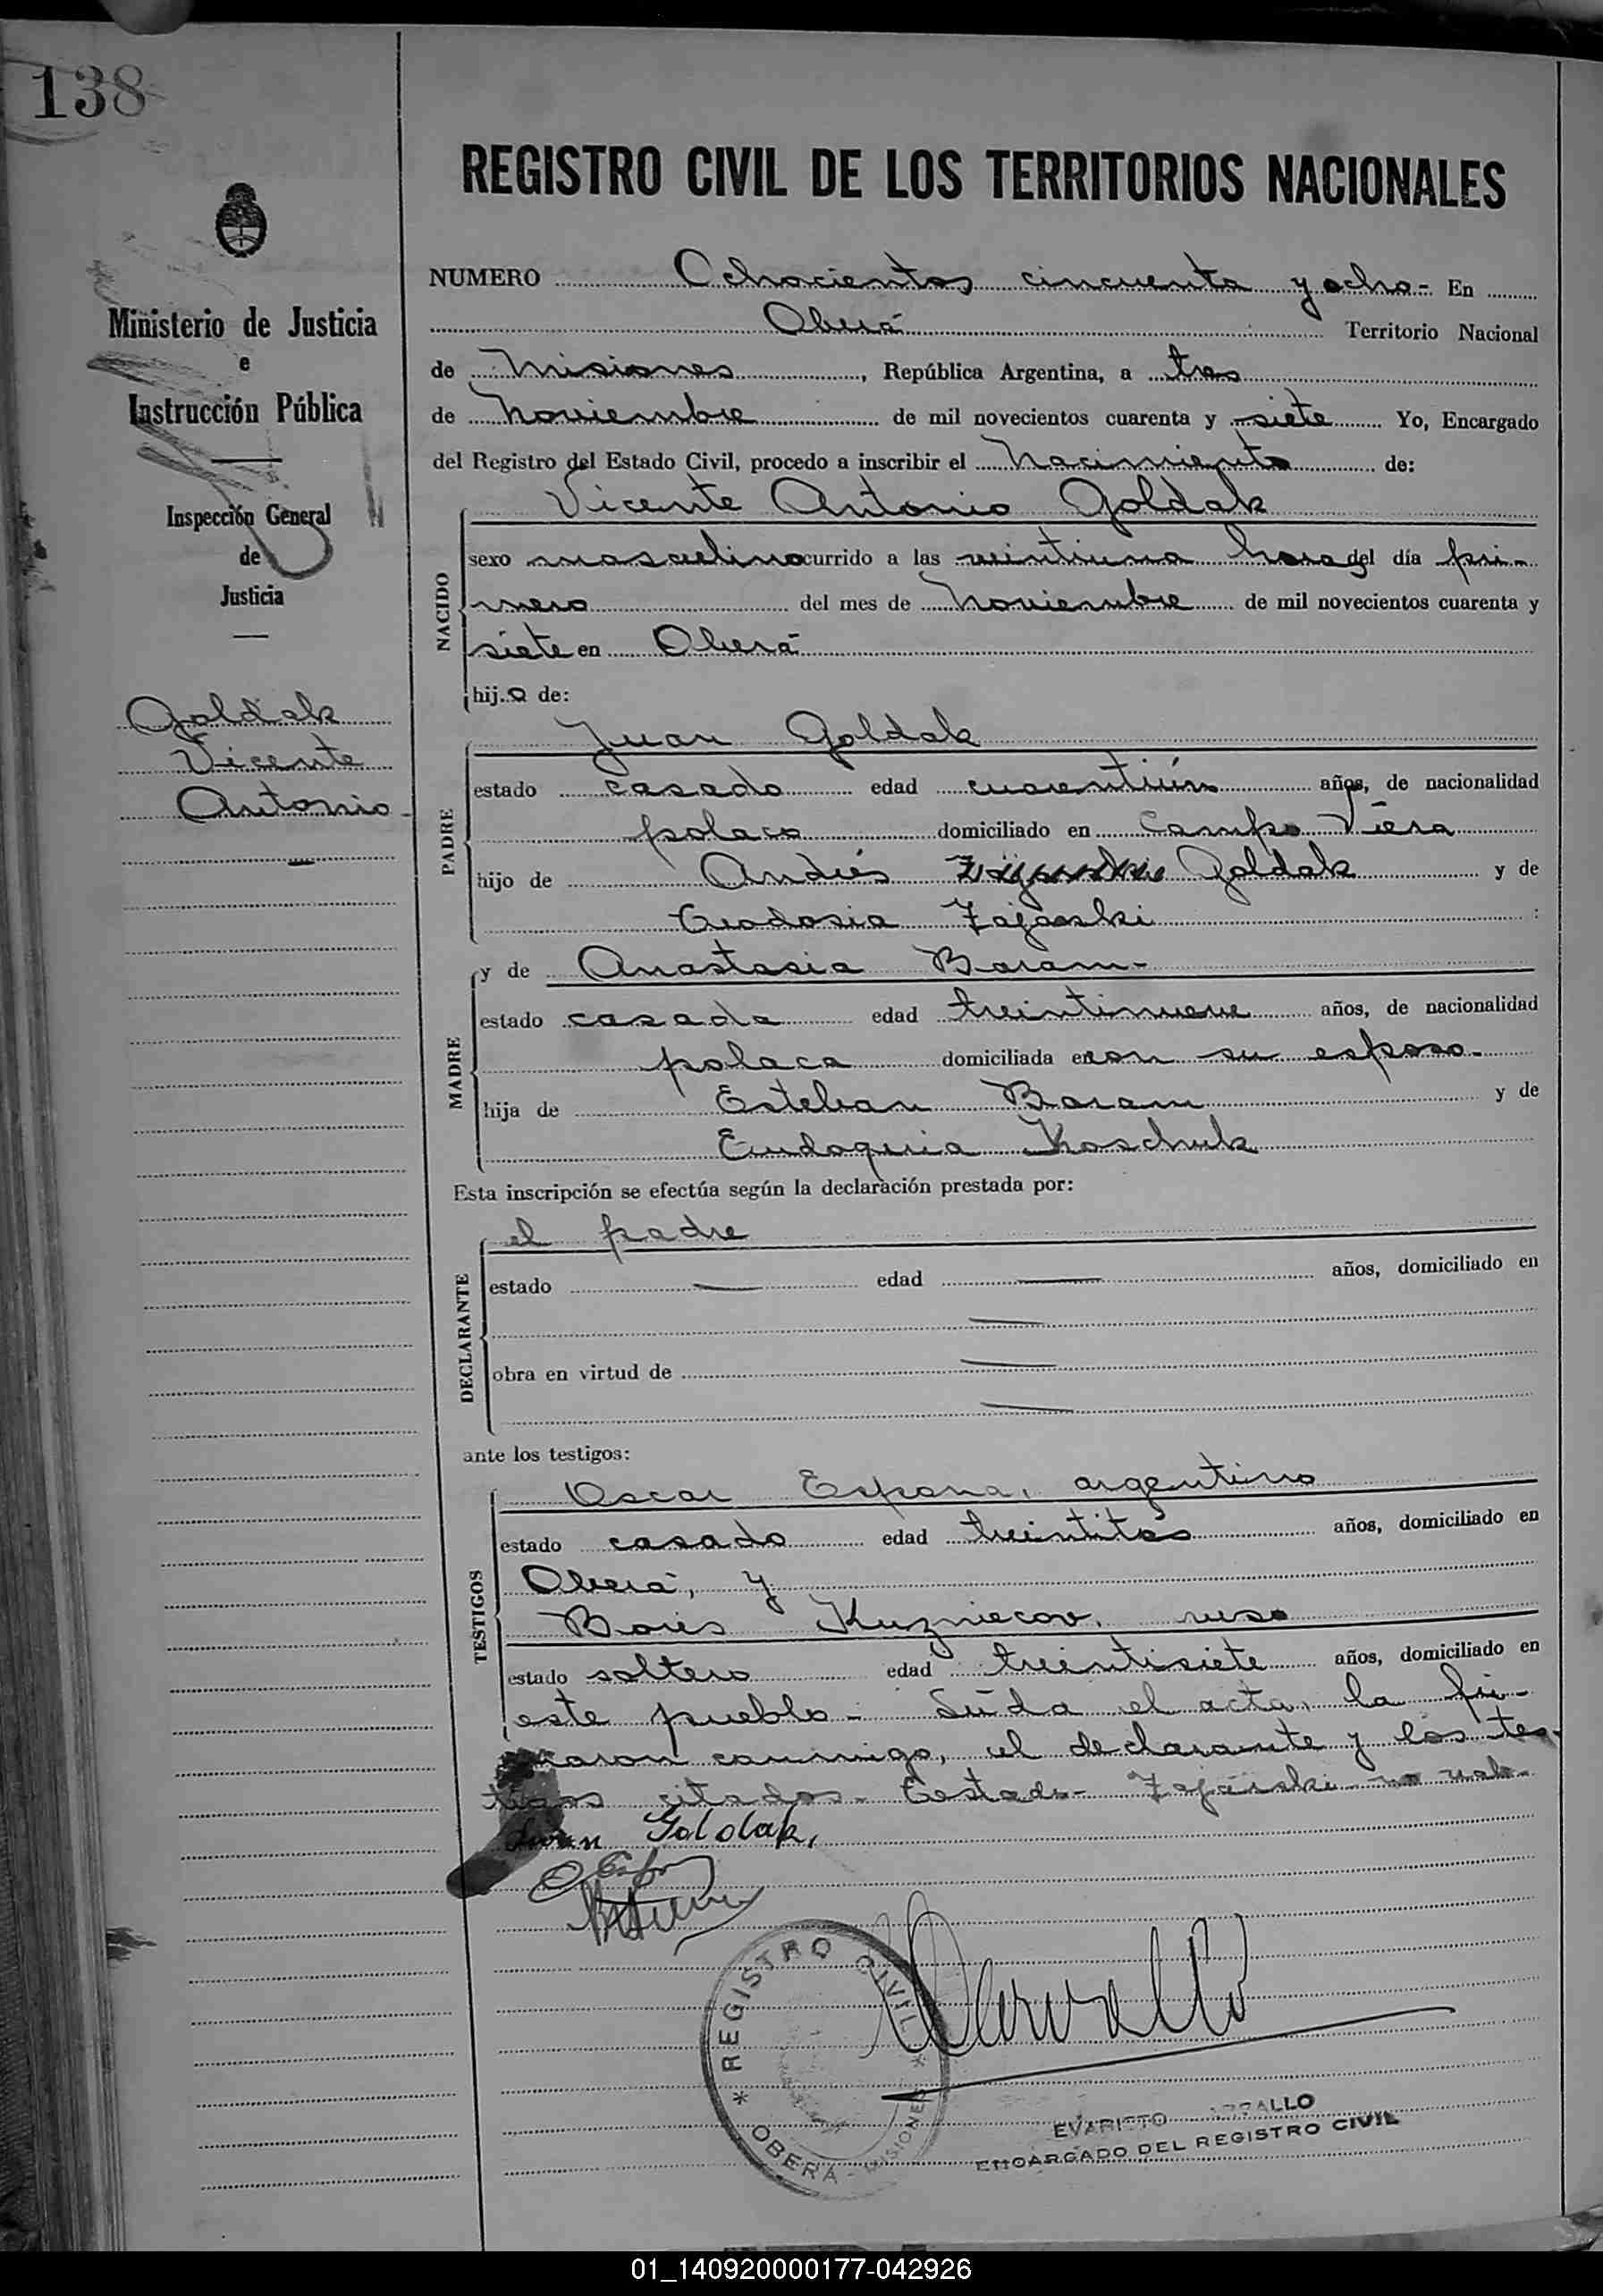 138
REGISTRO CIVIL DE LOS TERRITORIOS NACIONALES
Ministerio de Justicia
e
Instrucción Pública
Inspección General
de
Justicia
Goldak
Vicente
Antonio
NUMERO Ochocientos cincuenta y ocho.- En
Oberá Territorio Nacional
de Misiones, República Argentina, a tres
de Noviembre de mil novecientos cuarenta y siete Yo, Encargado
del Registro del Estado Civil, procedo a inscribir el Nacimiento de:
Vicente Antonio Goldak
NACIDO
sexo masculino ocurrido a las veintiuna hora del día pri-
mero del mes de Noviembre de mil novecientos cuarenta y
siete en Oberá
hijo de:
Juan Goldak
PADRE
estado casado edad cuarentiún años, de nacionalidad
polaco domiciliado en Campo Viera
hijo de Andrés Goldak y de
Teodosia Zajarski
y de Anastasia Baram-
MADRE
estado casada edad treintinueve años, de nacionalidad
polaca domiciliada en con su esposo.-
hija de Esteban Baram y de
Eudoquia Koschuk
Esta inscripción se efectúa según la declaración prestada por:
el padre
DECLARANTE
estado — edad — años, domiciliado en
—
obra en virtud de —
—
ante los testigos:
Oscar Espana, argentino
TESTIGOS
estado casado edad treintitrés años, domiciliado en
Oberá, y
Boris Kuzniecov, ruso
estado soltero edad treintisiete años, domiciliado en
este pueblo.- Leída el acta, la fir-
maron conmigo, el declarante y los tes-
tigos citados.- Testado- Zajarski no vale-
Juan Goldak,
REGISTRO CIVIL
* OBERÁ - MISIONES *
EVARISTO
ENCARGADO DEL REGISTRO CIVIL
01_140920000177-042926